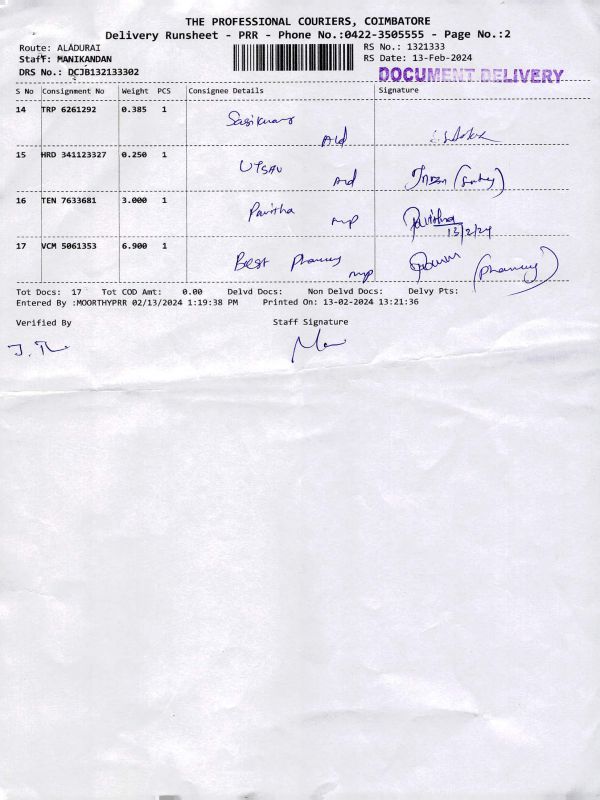 THE PROFESSIONAL COURIERS, COIMBATORE
Delivery Runsheet - PRR - Phone No.:0422-3505555 - Page No.:2
Route: ALADURAI RS No.: 1321333
Staff: MANIKANDAN RS Date: 13-Feb-2024
DRS No.: DCJB132133302 DOCUMENT DELIVERY
S No Consignment No Weight PCS Consignee Details Signature
14 TRP 6261292 0.385 1 Sasikumar
Ald
15 HRD 341123327 0.250 1 UTSAV
Ald
16 TEN 7633681 3.000 1 Pavitha
mp Pavithra
13/2/24
17 VCM 5061353 6.900 1 Best Pharmacy
mp (Pharmacy)
Tot Docs: 17 Tot COD Amt: 0.00 Delvd Docs: Non Delvd Docs: Delvy Pts:
Entered By :MOORTHYPRR 02/13/2024 1:19:38 PM Printed On: 13-02-2024 13:21:36
Verified By Staff Signature